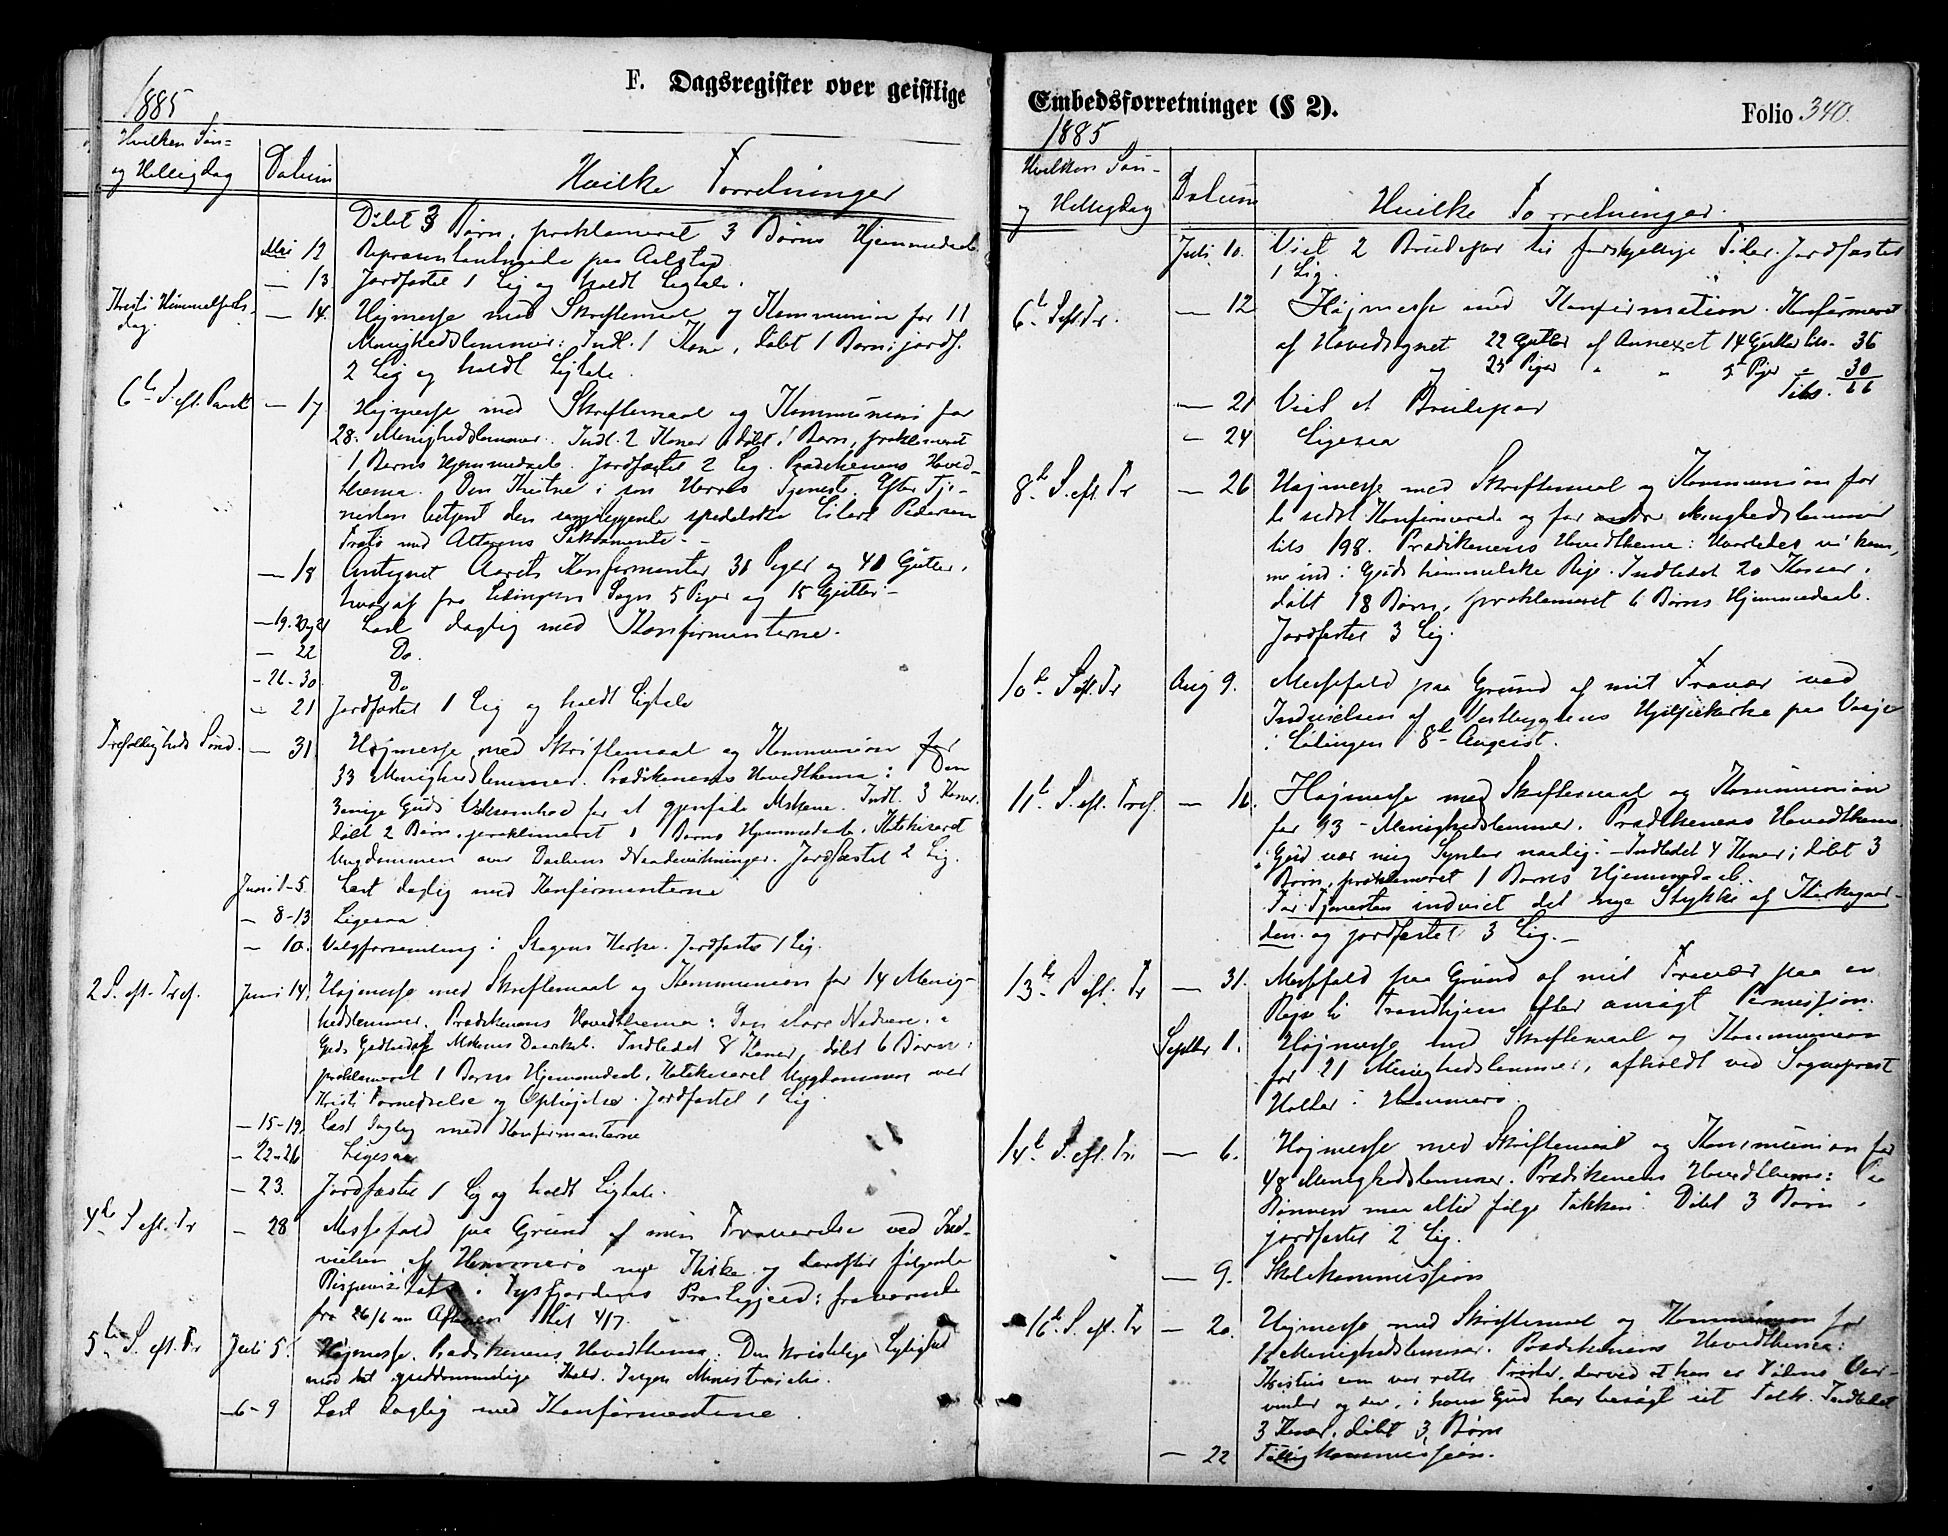 F. Dagsregister over geistlige
1885
Hvilken Søn=
og Helligdag
Datum
Hvilke Forretninger
Døbt 3 Børn, proklameret 3 Børns Hjemmedaab.
Mai 12 Repræsentantmøde paa Aalstad.
— 13 Jordfæstet 1 Lig og holdt Ligtale.
Kristi Himmelfarts- — 14. Højmesse med Skriftemaal og Kommunion for 11
dag. Menighedslemmer: Indl. 1 Kone, døbt 1 Barn; jordf.
2 Lig og holdt Ligtale.
6te S. eft. Paaske — 17. Højmesse med Skriftemaal og Kommunion for
28 Menighedslemmer. Indl. 2 Koner døbt 1 Barn, proklameret
1 Barns Hjemmedaab. Jordfæstet 2 Lig. Prædikenens Hoved-
thema. Den Kristne i sin Herres Tjeneste. Efter Tje-
nesten betjent den spedalske Eilert Pedersen
med Alterens Sakramente.
— 18 Antegnet Aarets Konfirmanter 31 Piger og 41 Gutter,
hvoraf fra Lødingens Sogn 5 Piger og 15 Gutter —
— 19. 20 og 21 Læst daglig med Konfirmanterne.
— 22 Do.
- 26-30. Do
— 21 Jordfæstet 1 Lig og holdt Ligtale
Trefoldigheds Sønd. — 31. Højmesse med Skriftemaal og Kommunion for
33 Menighedslemmer. Prædikenens Hovedthema: Den
3enige Guds Virksomhed for at gjenføde Mskene. Indl. 3 Koner.
døbt 2 Børn, proklameret 1 Barns Hjemmedaab. Katekiseret
Ungdommen over Daabens Naadevirkninger. Jordfæstet 2 Lig.
Juni 1-5. Læst daglig med Konfirmanterne
— 8-13 Ligesaa
— 10. Valgforsamling i Skogens Kirke. Jordfæstet 1 Lig.
2 S. eft. Tref. Juni 14. Højmesse med Skriftemaal og Kommunion for 14 Menig-
hedslemmer. Prædikenens Hovedthema: Den store Nadvere.
Guds Godhed og Mskenes Daarskab. Indledet 8 Koner, døbt 6 Børn,
proklameret 1 Barns Hjemmedaab. Katekiseret Ungdommen over
Kristi Fornedrelse og Ophøjelse. Jordfæstet 1 Lig.
— 15-19. Læst daglig med Konfirmanterne
— 22-26 Ligesaa
— 23. Jordfæstet 1 Lig og holdt Ligtale.
4de S eft. Tr — 28 Messefald paa Grund af min Fraværelse ved Ind-
vielsen af Hammerø nye Kirke og derefter følgende
Bispevisitats i Tysfjordens Præstegjeld: fraværende
fra 26/6 om Aftenen til 4/7.
5te S. eft. Tr Juli 5. Højmesse. Prædikenens Hovedthema: Den kristelige Lydighed
mod det guddommelige Kald. Ingen Ministerielle.
— 6-9 Læst daglig med Konfirmanterne.
Embedsforretninger (§ 2).
Folio 340.
1885
Hvilken Søn-
og Helligdag
Datum
Hvilke Forretninger.
Juli 10. Viet 2 Brudepar til forskjellige Tider. Jordfæstet
1 Lig.
6te S. eft. Tr. — 12 Højmesse med Konfirmation. Konfirmeret
af Hovedsognet 22 Gutter af Annexet 14 Gutter tils. 36
og 25 Piger " " 5 Piger = 30
Tils. 66
— 21 Viet et Brudepar
— 24 Ligesaa
8de S. eft. Tr — 26 Højmesse med Skriftemaal og Kommunion for
de sidst Konfirmerede og for andre Menighedslemmer
tils 198. Prædikenens Hovedthema: Hvorledes vi kom-
me ind i Guds himmelske Rige. Indledet 20 Koner,
døbt 18 Børn, proklameret 6 Børns Hjemmedaab.
Jordfæstet 3 Lig.
10de S. eft. Tr Aug 9. Messefald paa Grund af mit Fravær ved
Indvielsen af Vestbygdens Hjelpekirke paa
i Lødingen 8de August.
11te S. eft. Tref. — 16. Højmesse med Skriftemaal og Kommunion
for 93 Menighedslemmer. Prædikenens Hovedthema.
" Gud vær mig Synder naadig." Indledet 4 Koner; døbt 3
Børn, proklameret 1 Barns Hjemmedaab.
Før Tjenesten indviet det nye Stykke af Kirkegaar-
den og jordfæstet 3 Lig. —
13de S. eft. Tr — 31. Messefald paa Grund af mit Fravær paa en
Rejse til Trondhjem efter Permission.
Septbr 1. Højmesse med Skriftemaal og Kommunion
for 21 Menighedslemmer, afholdt ved Sogneprest
i Hammerø.
14de S. eft. Tr. — 6. Højmesse med Skriftemaal og Kommunion for
48 Menighedslemmer. Prædikenens Hovedthema: Paa
Bønnen maa altid følge Takken. Døbt 3 Børn,
jordfæstet 2 Lig.
— 9. Skolekommission
16de S. eft. Tr — 20. Højmesse med Skriftemaal og Kommunion for
16 Menighedslemmer. Prædikenens Hovedthema:
Kristus som vor rette Trøster, derved at han er Dødens Over-
vinder og den, i hvem Gud har besøgt sit Folk. Indledet
3 Koner, døbt 3 Børn
— 22 Fattigkommission.